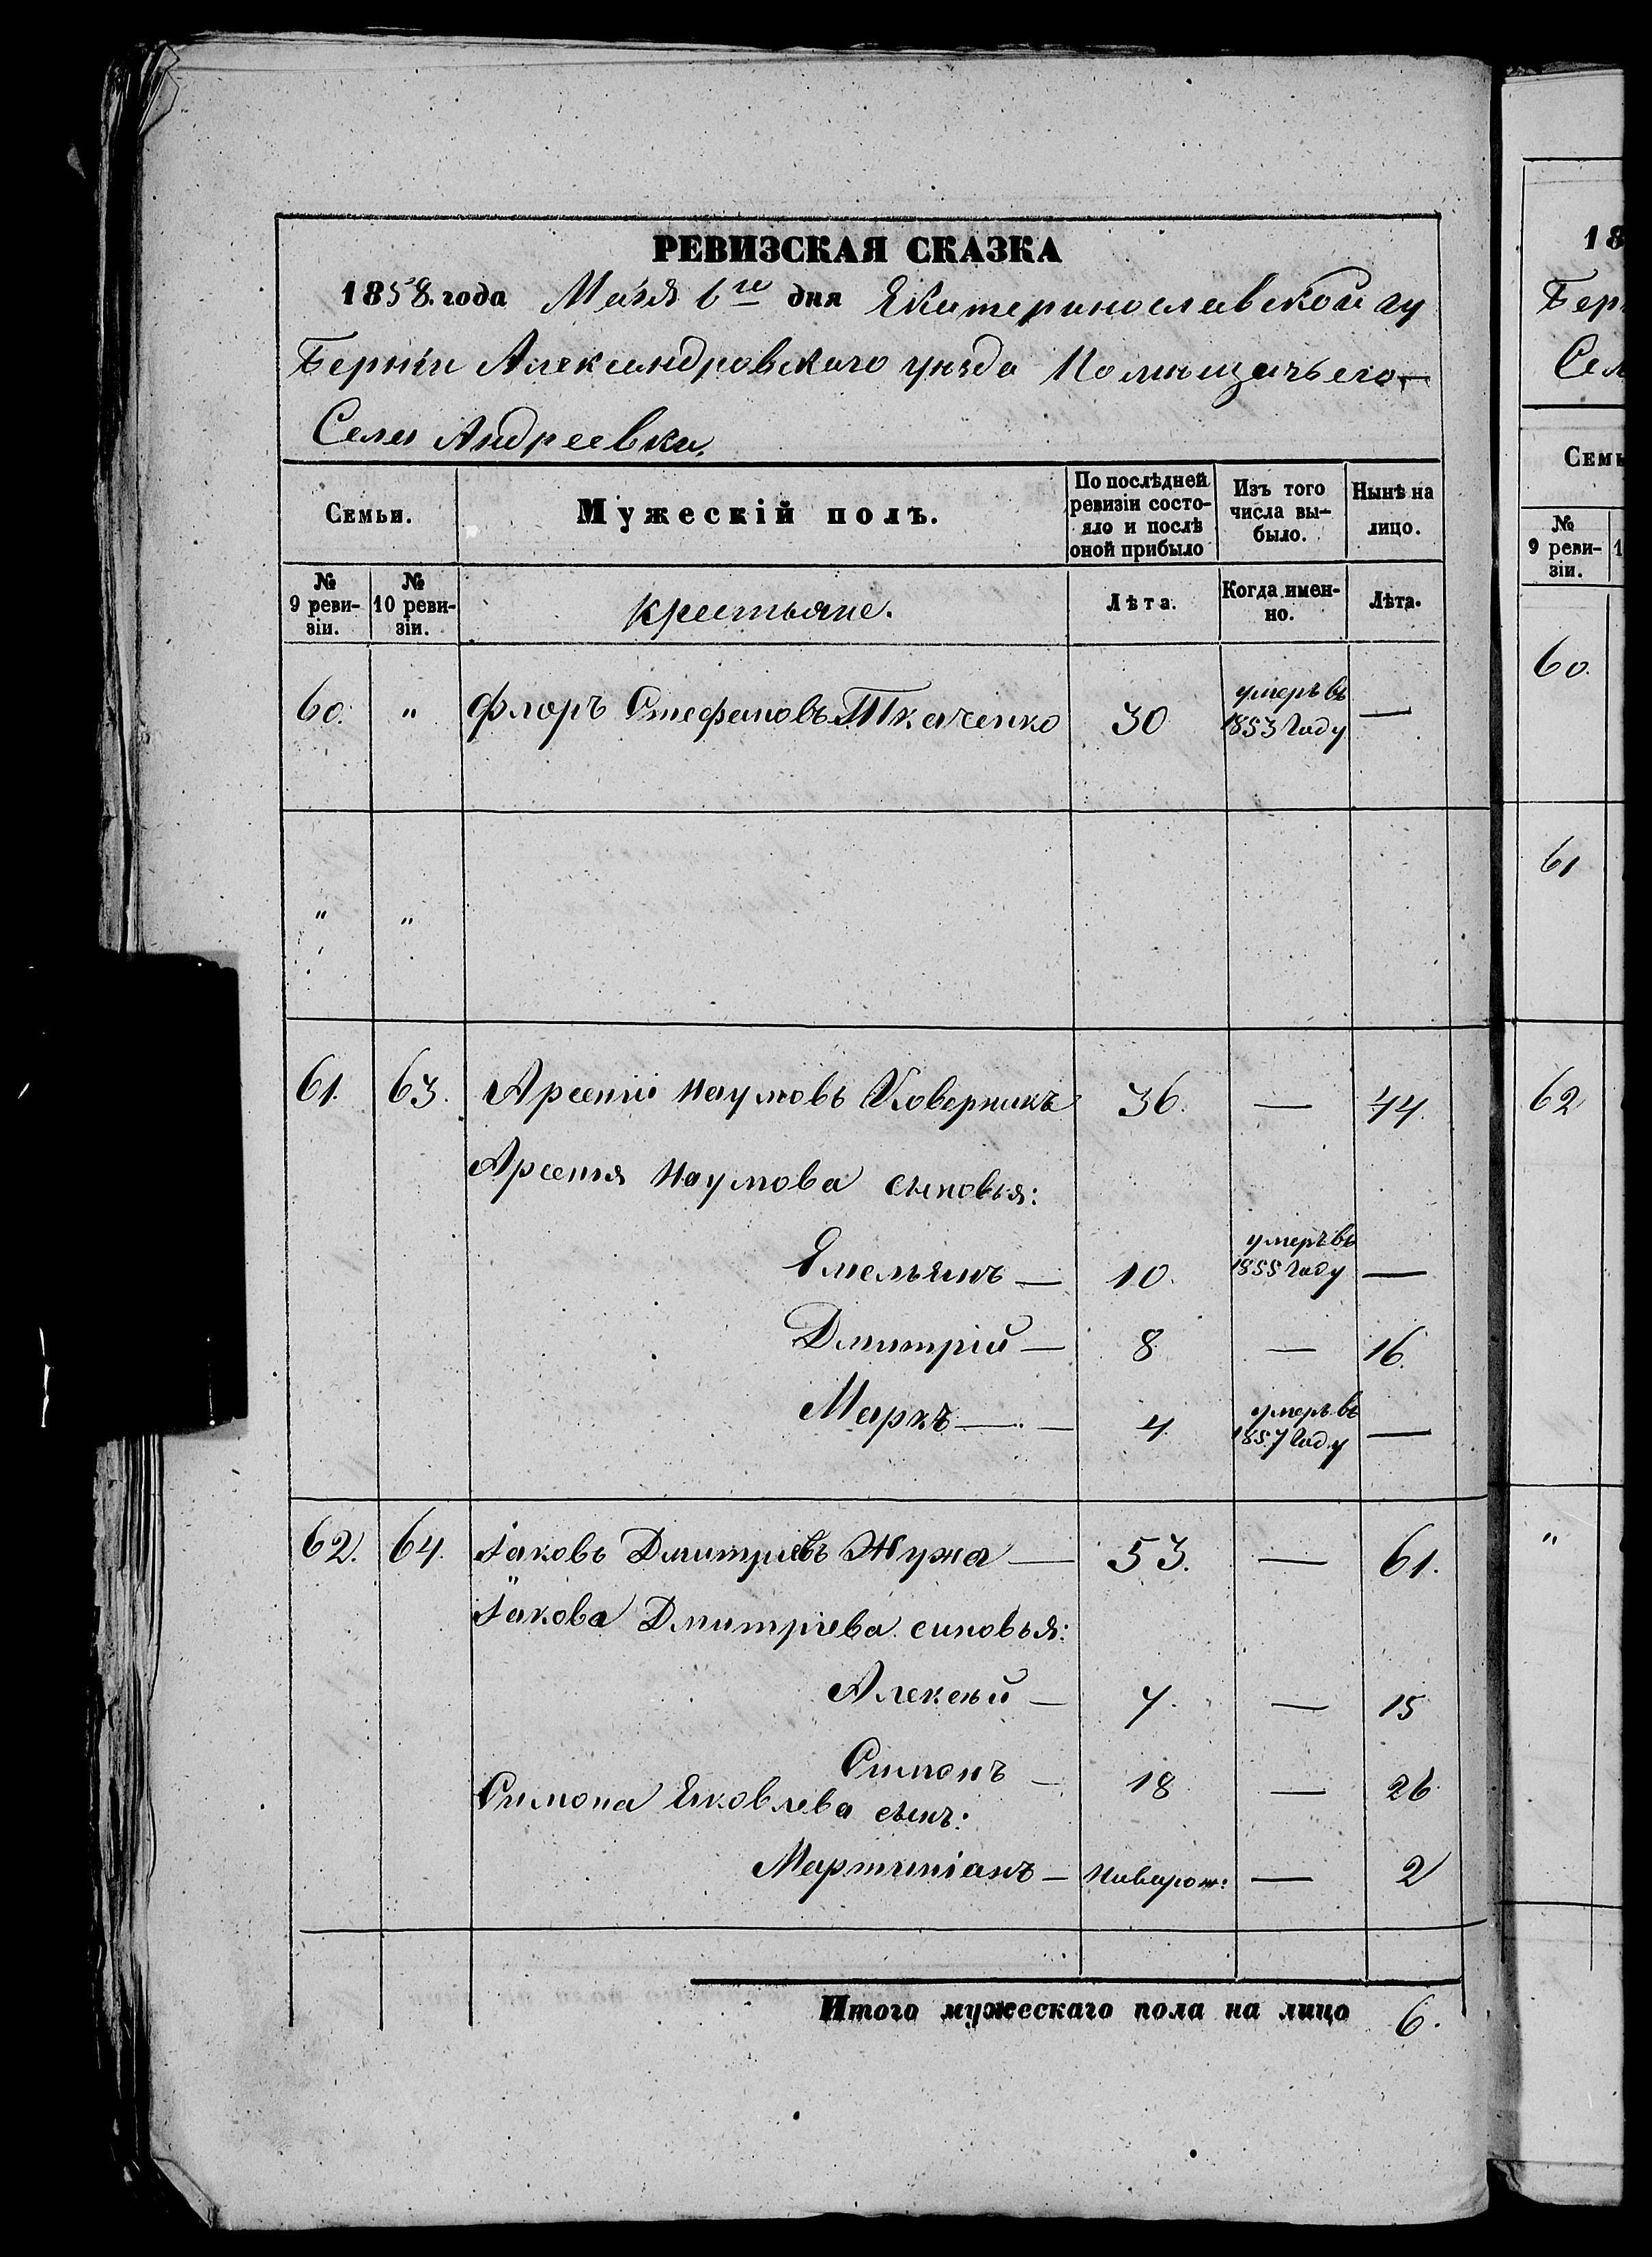 РЕВИЗСКАЯ СКАЗКА
1858. года Маія 6го дня Екатеринославской гу
берніи Александровскаго уѣзда Помѣщичьего
Села Андреевки.
Семьи.
Мужескій полъ.
По послѣдней ревизіи состояло и послѣ оной прибыло
Изъ того числа выбыло.
Нынѣ на лицо.
№ 9 ревизіи.
№ 10 ревизіи.
крестьяне.
Лѣта.
Когда именно.
Лѣта.
60. " Флоръ Стефановъ Ткаченко 30 умеръ въ 1853 году —
" "
61. 63. Арсеній Наумовъ Коверникъ 36. — 44.
Арсенія Наумова сыновья:
Емельянъ — 10. умеръ въ 1855 году —
Дмитрій — 8 — 16.
Маркъ — 4. умеръ въ 1857 году —
62. 64. Іаковъ Дмитріевъ Жужа — 53. — 61.
Іакова Дмитріева сыновья:
Алексѣй — 7. — 15
Симонъ — 18 — 26
Симона Яковлева сынъ:
Мартиніанъ — новорож: — 2
Итого мужескаго пола на лицо 6.
18
Бер
Сел
Семь
№ 9 ревизіи.
1
60.
61
62
"